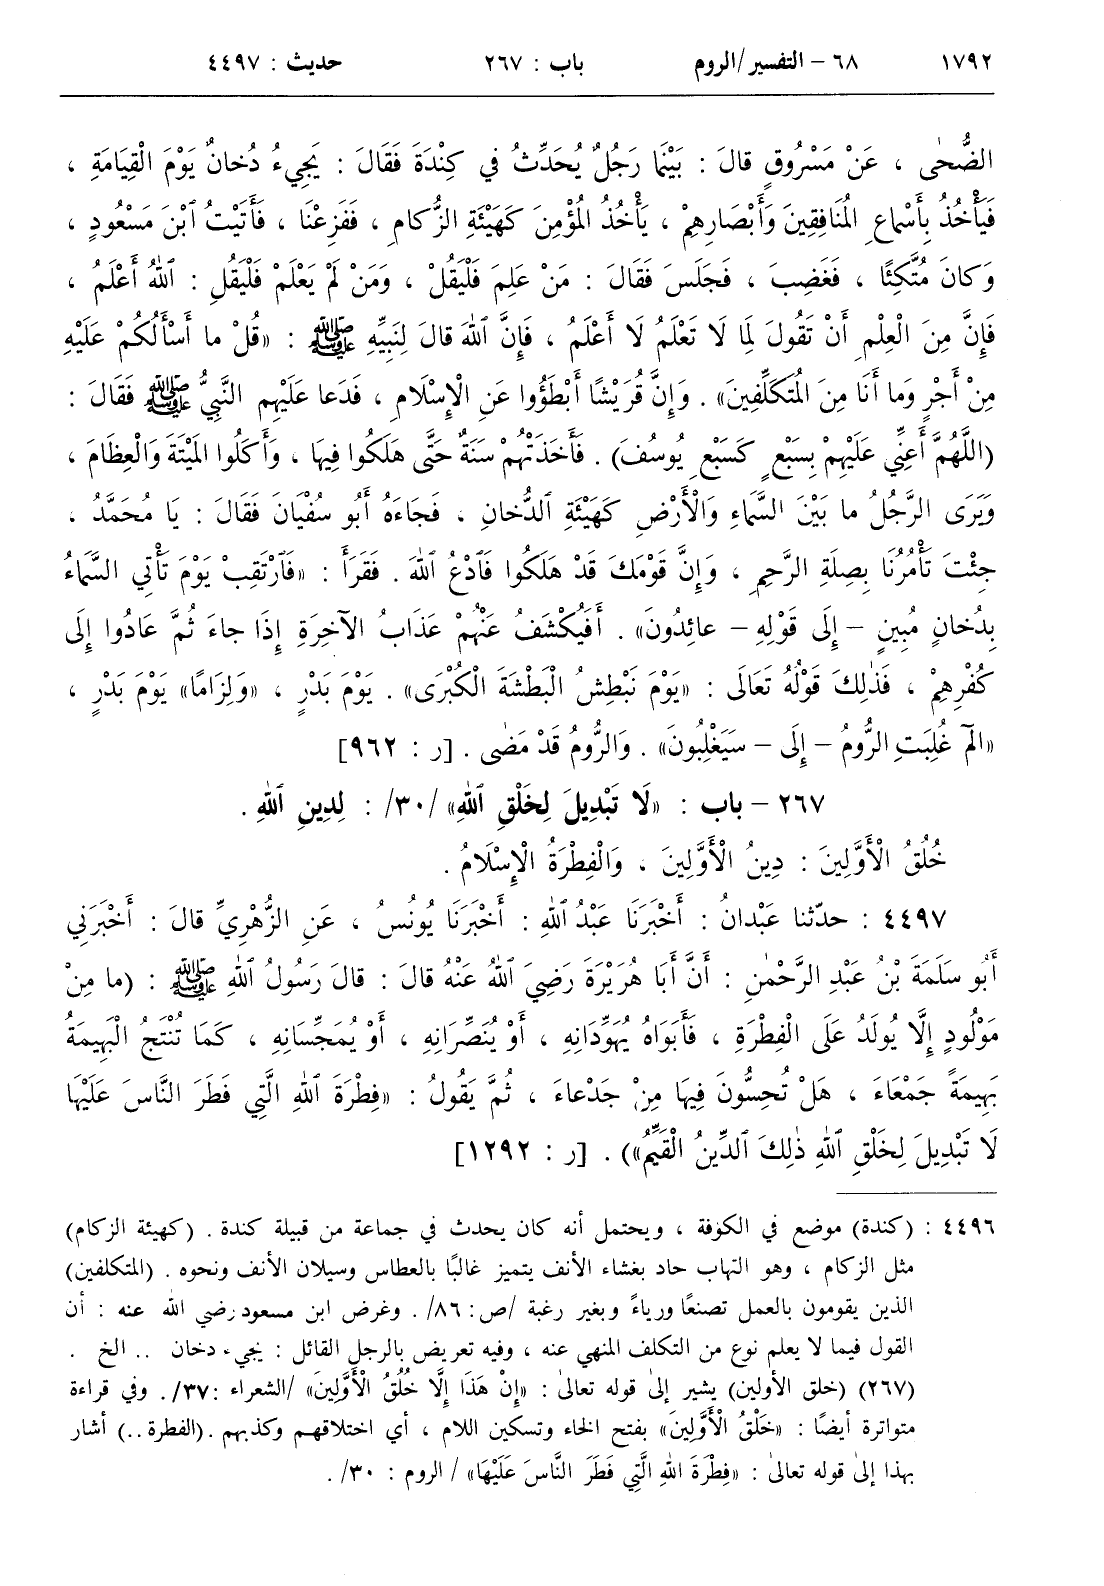 ١٧٩٢ ٦٨ - التفسير/الروم باب : ٢٦٧ حديث : ٤٤٩٧
الضُّحٰى ، عَنْ مَسْرُوقٍ قالَ : بَيْنَمَا رَجُلٌ يُحَدِّثُ في كِنْدَةَ فَقَالَ : يَجِيءُ دُخانٌ يَوْمَ الْقِيَامَةِ ،
فَيَأْخُذُ بِأَسْمَاعِ المُنَافِقِينَ وَأَبْصَارِهِمْ ، يَأْخُذُ المُؤْمِنَ كَهَيْئَةِ الزُّكامِ ، فَفَزِعْنَا ، فَأَتَيْتُ ٱبْنَ مَسْعُودٍ ،
وَكانَ مُتَّكِئًا ، فَغَضِبَ ، فَجَلَسَ فَقَالَ : مَنْ عَلِمَ فَلْيَقُلْ ، وَمَنْ لَمْ يَعْلَمْ فَلْيَقُلِ : ٱللهُ أَعْلَمُ ،
فَإِنَّ مِنَ الْعِلْمِ أَنْ تَقُولَ لِمَا لَا تَعْلَمُ لَا أَعْلَمُ ، فَإِنَّ ٱللهَ قالَ لِنَبِيِّهِ ﷺ : «قُلْ ما أَسْأَلُكُمْ عَلَيْهِ
مِنْ أَجْرٍ وَما أَنَا مِنَ المُتَكَلِّفِينَ» . وَإِنَّ قُرَيْشًا أَبْطَؤُوا عَنِ الْإِسْلَامِ ، فَدَعا عَلَيْهِم النَّبِيُّ ﷺ فَقَالَ :
(اللَّهُمَّ أَعِنِّي عَلَيْهِمْ بِسَبْعٍ كَسَبْعِ يُوسُفَ) . فَأَخَذَتْهُمْ سَنَةٌ حَتَّى هَلَكُوا فِيهَا ، وَأَكَلُوا المَيْتَةَ وَالْعِظَامَ ،
وَيَرَى الرَّجُلُ ما بَيْنَ السَّمَاءِ وَالْأَرْضِ كَهَيْئَةِ ٱلدُّخانِ ، فَجَاءَهُ أَبُو سُفْيَانَ فَقَالَ : يَا مُحَمَّدُ ،
جِئْتَ تَأْمُرُنَا بِصِلَةِ الرَّحِمِ ، وَإِنَّ قَوْمَكَ قَدْ هَلَكُوا فَٱدْعُ ٱللهَ . فَقَرَأَ : «فَٱرْتَقِبْ يَوْمَ تَأْتِي السَّمَاءُ
بِدُخانٍ مُبِينٍ - إِلَى قَوْلِهِ - عائِدُونَ» . أَفَيُكْشَفُ عَنْهُمْ عَذَابُ الآخِرَةِ إِذَا جاءَ ثُمَّ عَادُوا إِلَى
كُفْرِهِمْ ، فَذٰلِكَ قَوْلُهُ تَعَالَى : «يَوْمَ نَبْطِشُ الْبَطْشَةَ الْكُبْرَى» . يَوْمَ بَدْرٍ ، «وَلِزَامًا» يَوْمَ بَدْرٍ ،
«الٓمٓ غُلِبَتِ الرُّومُ - إِلَى - سَيَغْلِبُونَ» . وَالرُّومُ قَدْ مَضٰى . [ر : ٩٦٢]
٢٦٧ - باب : «لَا تَبْدِيلَ لِخَلْقِ ٱللهِ» /٣٠/ : لِدِينِ ٱللهِ .
خُلُقُ الْأَوَّلِينَ : دِينُ الْأَوَّلِينَ ، وَالْفِطْرَةُ الْإِسْلَامُ .
٤٤٩٧ : حدّثنا عَبْدانُ : أَخْبَرَنَا عَبْدُ ٱللهِ : أَخْبَرَنَا يُونُسُ ، عَنِ الزُّهْرِيِّ قالَ : أَخْبَرَنِي
أَبُو سَلَمَةَ بْنُ عَبْدِ الرَّحْمٰنِ : أَنَّ أَبَا هُرَيْرَةَ رَضِيَ ٱللهُ عَنْهُ قالَ : قالَ رَسُولُ ٱللهِ ﷺ : (ما مِنْ
مَوْلُودٍ إِلَّا يُولَدُ عَلَى الْفِطْرَةِ ، فَأَبَوَاهُ يُهَوِّدَانِهِ ، أَوْ يُنَصِّرَانِهِ ، أَوْ يُمَجِّسَانِهِ ، كَمَا تُنْتَجُ الْبَهِيمَةُ
بَهِيمَةً جَمْعَاءَ ، هَلْ تُحِسُّونَ فِيهَا مِنْ جَدْعاءَ ، ثُمَّ يَقُولُ : «فِطْرَةَ ٱللهِ الَّتِي فَطَرَ النَّاسَ عَلَيْهَا
لَا تَبْدِيلَ لِخَلْقِ ٱللهِ ذٰلِكَ ٱلدِّينُ الْقَيِّمُ») . [ر : ١٢٩٢]
٤٤٩٦ : (كندة) موضع في الكوفة ، ويحتمل أنه كان يحدث في جماعة من قبيلة كندة . (كهيئة الزكام)
مثل الزكام ، وهو التهاب حاد بغشاء الأنف يتميز غالبًا بالعطاس وسيلان الأنف ونحوه . (المتكلفين)
الذين يقومون بالعمل تصنعًا ورياءً وبغير رغبة /ص : ٨٦/ . وغرض ابن مسعود رضي الله عنه : أن
القول فيما لا يعلم نوع من التكلف المنهي عنه ، وفيه تعريض بالرجل القائل : يجيء دخان .. الخ .
(٢٦٧) (خلق الأولين) يشير إلىٰ قوله تعالىٰ : «إِنْ هَذَا إِلَّا خُلُقُ الْأَوَّلِينَ» /الشعراء : ٣٧/. وفي قراءة
متواترة أيضًا : «خَلْقُ الْأَوَّلِينَ» بفتح الخاء وتسكين اللام ، أي اختلاقهم وكذبهم . (الفطرة ..) أشار
بهذا إلىٰ قوله تعالىٰ : «فِطْرَةَ اللهِ الَّتِي فَطَرَ النَّاسَ عَلَيْهَا» / الروم : ٣٠/ .